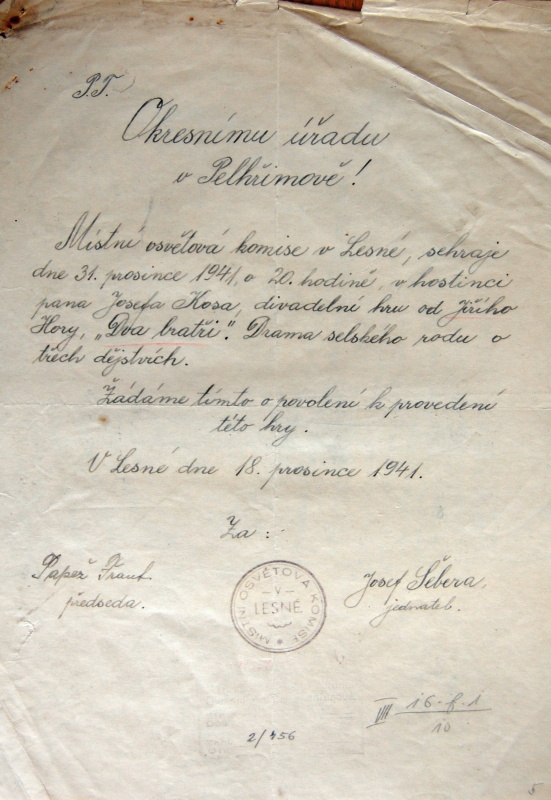 P.T.
Okresnímu úřadu
v Pelhřimově!
Místní osvětová komise v Lesné, sehraje
dne 31. prosince 1941, o 20. hodině, v hostinci
pana Josefa Kosa, divadelní hru od Jiřího
Hory, „Dva bratři". Drama selského rodu o
třech dějstvích.
Žádáme tímto o povolení k provedení
této hry.
V Lesné dne 18. prosince 1941.
Za:
Papež Frant.
předseda.
MÍSTNÍ OSVĚTOVÁ KOMISE
V
LESNÉ
Josef Šebera,
jednatel.
VIII
10
2/456
5